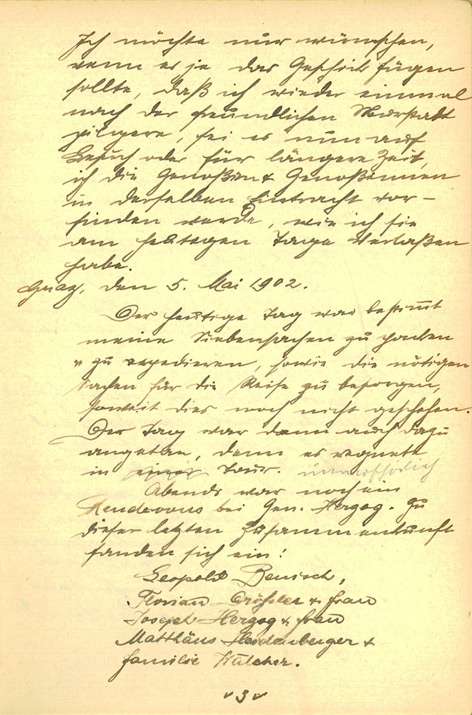 Ich möchte nur wünschen,
wenn es je das Geschick fügen
sollte, daß ich wieder einmal
nach der freundlichen Murstadt
pilgere, sei es nun auf
Besuch oder für längere Zeit,
ich die Genoßen & Genoßinnen
in derselben Eintracht vor-
finden werde, wie ich sie
am heutigen Tage verlaßen
habe.
Graz, den 5. Mai 1902.
Der heutige Tag war bestimmt
meine Siebensachen zu packen
& zu expedieren, sowie die nötigen
Sachen für die Reise zu besorgen,
soweit dies noch nicht geschehen.
Der Tag war dann auch dazu
angetan, denn es regnete
in einer Tour. unaufhörlich
Abends war noch ein
Rendevous bei Gen. Herzog. Zu
dieser letzten Zusammenkunft
fanden sich ein:
Leopold Benisch,
Florian & Frau
Joseph Herzog & Frau
Matthäus &
Familie
3